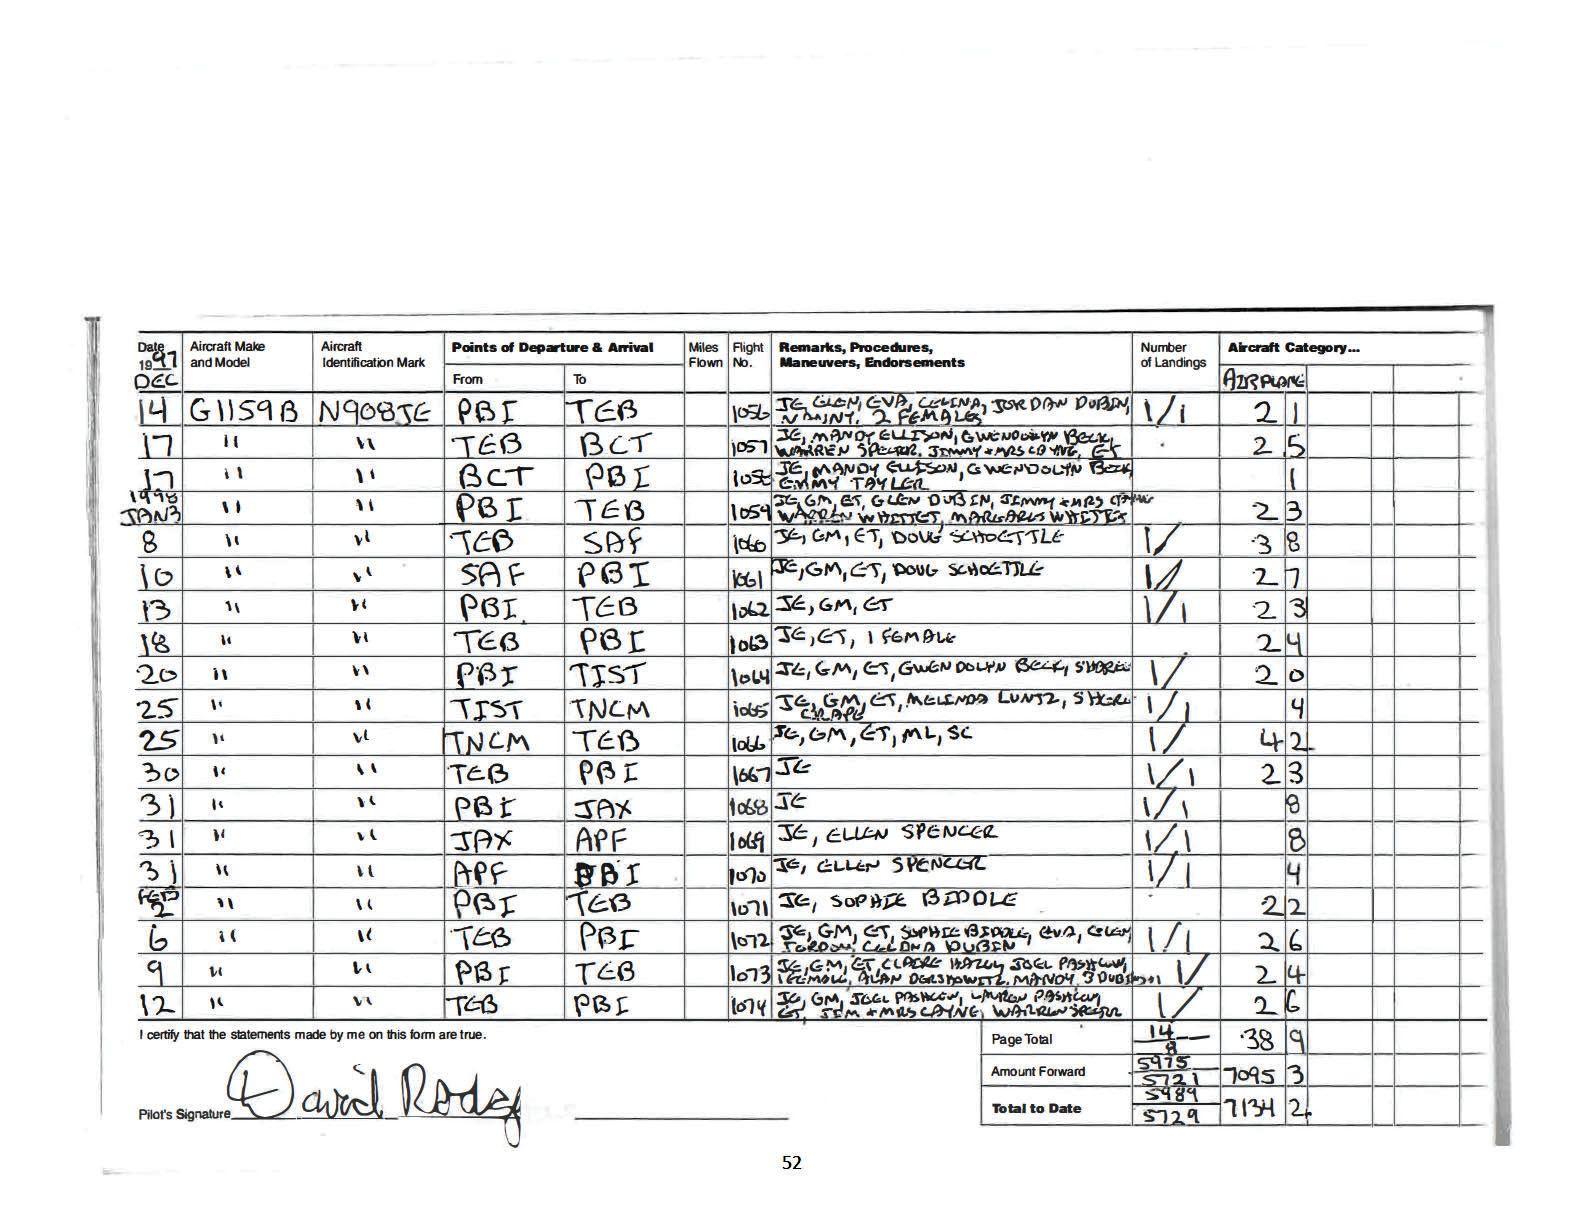 Date Aircraft Make Aircraft Points of Departure & Arrival Miles Flight Remarks, Procedures, Number Aircraft Category...
1997 and Model Identification Mark Flown No. Maneuvers, Endorsements of Landings
DEC From To AIRPLANE
14 G1159B N908JE PBI TEB 1056 JE, GLEN, EVA, CELINA, JORDAN DUBIN, 1/1 2 1
2 FEMALES
17 " " TEB BCT 1057 JE, MANDY ELLISON, GWENDOLYN BECK, 2.5
WARREN SPECTOR, JIMMY + MRS CAYNE, ET
17 " " BCT PBI 1058 JE, MANDY ELLISON, GWENDOLYN BECK 1
EMMY TAYLER
1998
JAN 3 " " PBI TEB 1059 JE, GM, ET, GLEN DUBIN, JIMMY + MRS CAYNE 2 3
WARREN
8 " " TEB SAF 1060 JE, GM, ET, DOUG SCHOETTLE 1/ 3 8
10 " " SAF PBI 1061 JE, GM, ET, DOUG SCHOETTLE 1/ 2 7
13 " " PBI TEB 1062 JE, GM, ET 1/1 2 3
18 " " TEB PBI 1063 JE, ET, 1 FEMALE 2 4
20 " " PBI TIST 1064 JE, GM, ET, GWENDOLYN BECK, 1/ 2 0
25 " " TIST TNCM 1065 JE, GM, ET, MELINDA LUNTZ, 1/1 4
25 " " TNCM TEB 1066 JE, GM, ET, ML, SC 1/ 4 2
30 " " TEB PBI 1067 JE 1/1 2 3
31 " " PBI JAX 1068 JE 1/1 8
31 " " JAX APF 1069 JE, ELLEN SPENCER 1/1 8
31 " " APF PBI 1070 JE, ELLEN SPENCER 1/1 4
FEB
2 " " PBI TEB 1071 JE, SOPHIE BIDDLE 2 2
6 " " TEB PBI 1072 JE, GM, ET, SOPHIE BIDDLE, EVA, GLEN, 1/1 2 6
JORDON, CELINA DUBIN
9 " " PBI TEB 1073 JE, GM, ET, CLAIRE HAZELL, JOEL PASHCOW, 1/ 2 4
1 FEMALE, ALAN DERSHOWITZ, MANDY, 3 DUBINS
12 " " TEB PBI 1074 JE, GM, JOEL PASHCOW, LAUREN PASHCOW, 1/ 2 6
ET, JIM + MRS CAYNE, WARREN SPECTOR
I certify that the statements made by me on this form are true. Page Total 14 / 8 38 9
Amount Forward 5975 / 5721 7095 3
Pilot's Signature David Rodg Total to Date 5989 / 5729 7134 2
52